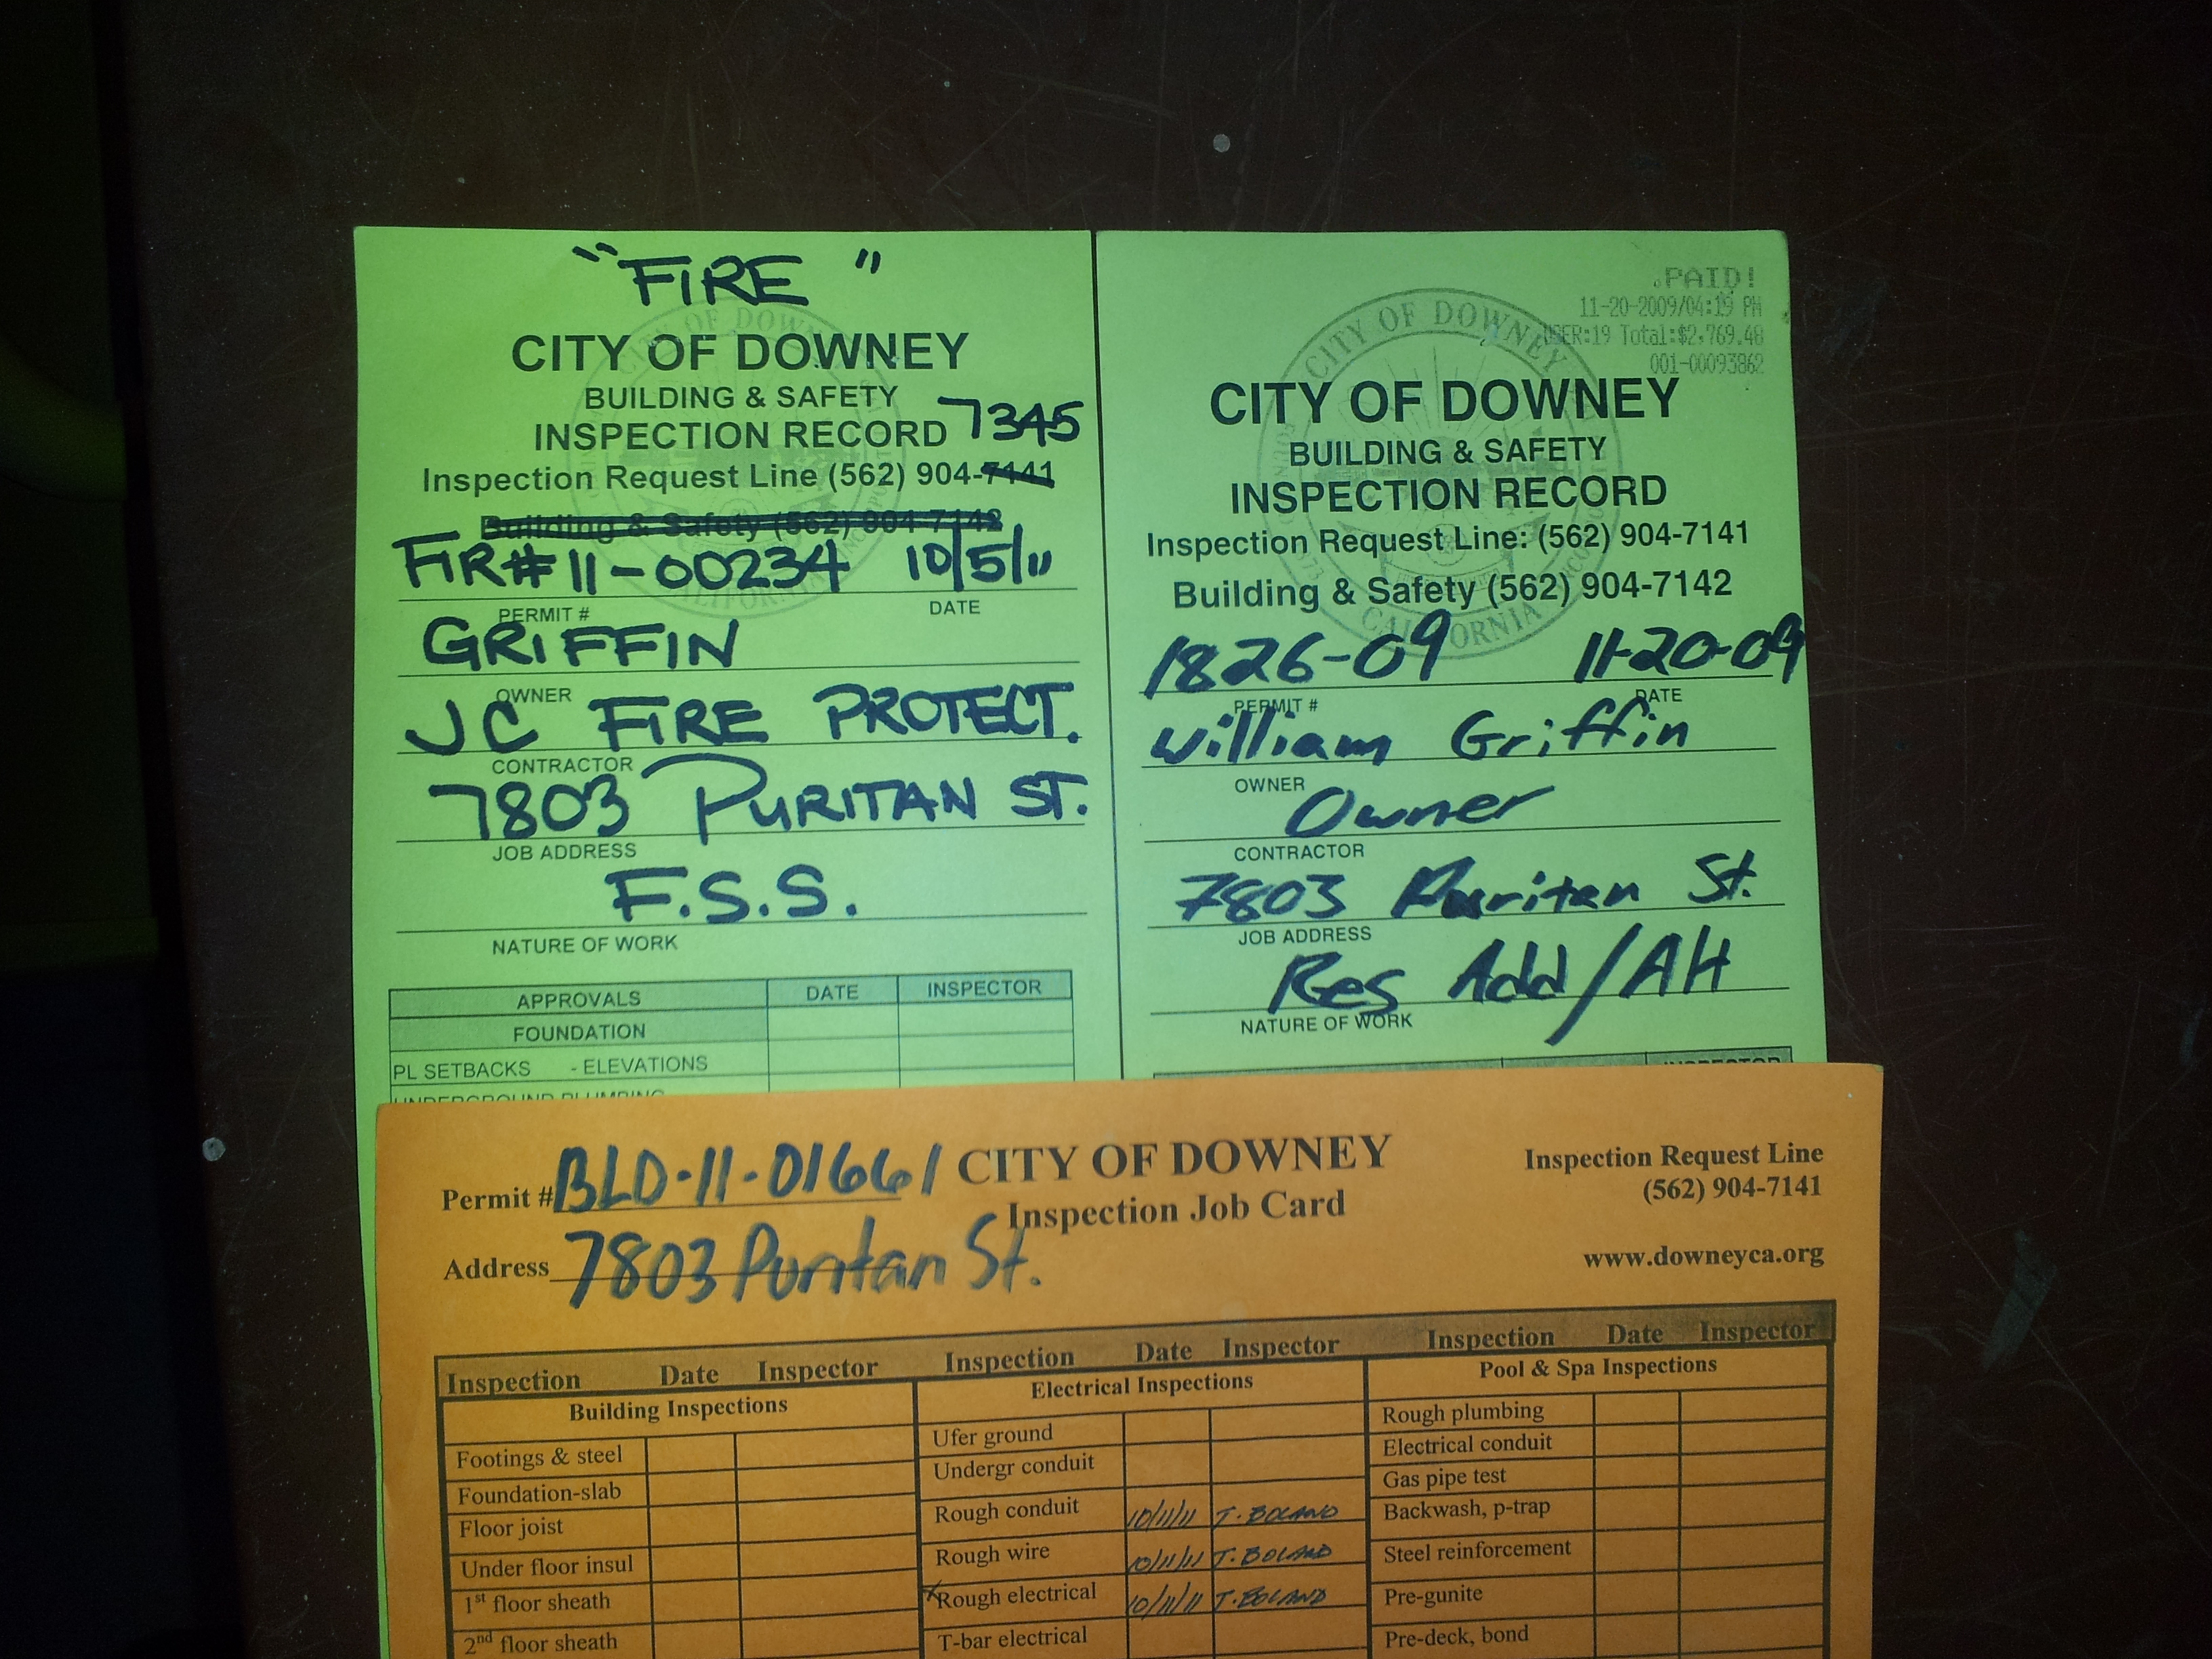 "FIRE"
CITY OF DOWNEY
BUILDING & SAFETY
INSPECTION RECORD 7345
Inspection Request Line (562) 904-7141
Building & Safety (562) 904-7142
FIR# 11-00234 10/5/11
PERMIT # DATE
GRIFFIN
OWNER
JC FIRE PROTECT.
CONTRACTOR
7803 PURITAN ST.
JOB ADDRESS
F.S.S.
NATURE OF WORK
APPROVALS DATE INSPECTOR
FOUNDATION
PL SETBACKS - ELEVATIONS
UNDERGROUND PLUMBING
PAID!
11-20-2009/04:19 PM
USER:19 Total:$2,769.48
001-00093862
CITY OF DOWNEY
BUILDING & SAFETY
INSPECTION RECORD
Inspection Request Line: (562) 904-7141
Building & Safety (562) 904-7142
1826-09 11-20-09
PERMIT # DATE
William Griffin
OWNER
Owner
CONTRACTOR
7803 Puritan St.
JOB ADDRESS
Res Add/Alt
NATURE OF WORK
INSPECTOR
Permit # BLD-11-01661 CITY OF DOWNEY
Inspection Job Card
Address 7803 Puritan St.
Inspection Request Line
(562) 904-7141
www.downeyca.org
Inspection Date Inspector Inspection Date Inspector Inspection Date Inspector
Building Inspections Electrical Inspections Pool & Spa Inspections
Footings & steel Ufer ground Rough plumbing
Foundation-slab Undergr conduit Electrical conduit
Gas pipe test
Floor joist Rough conduit 10/11/11 T. BOLAND Backwash, p-trap
Under floor insul Rough wire 10/11/11 T. BOLAND Steel reinforcement
1st floor sheath Rough electrical 10/11/11 T. BOLAND Pre-gunite
2nd floor sheath T-bar electrical Pre-deck, bond